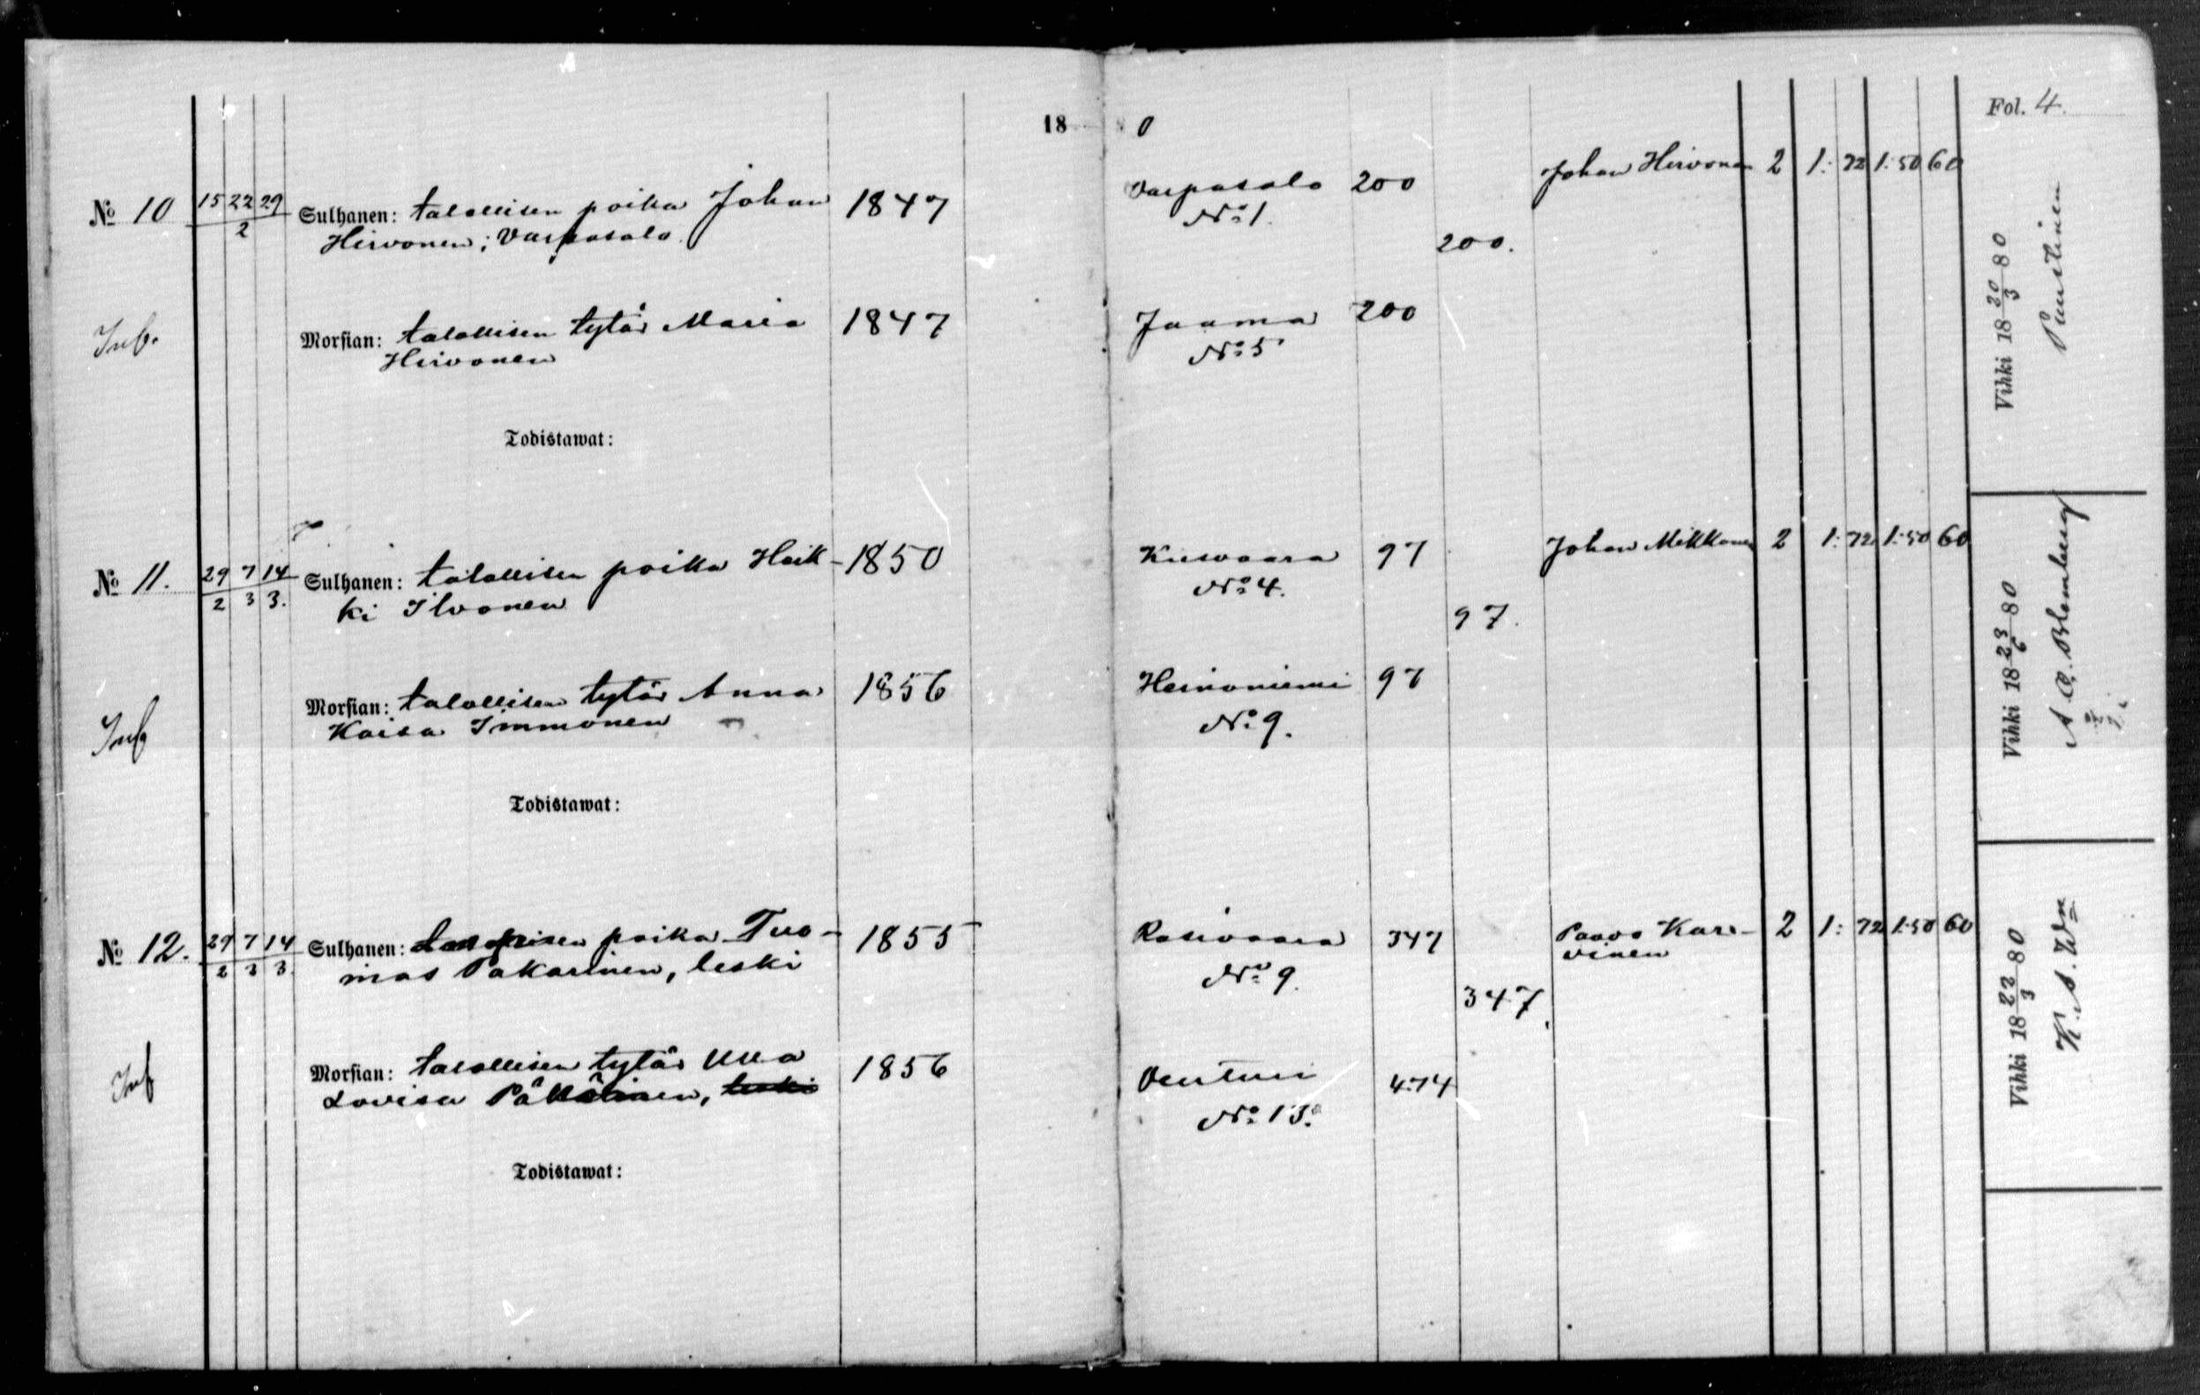 18 80
Fol. 4.
№ 10 15 22 29 / 2 Sulhanen: talollisen poika Johan 1847 Varpasalo 200 Johan Hirvonen 2 1: 72 1:50 60
Hirvonen; Varpasalo. № 1. 200.
Morsian: talollisen tytär Maria 1847 Jaama 200
Hirvonen № 5
Todistawat:
Vihki 18 20/3 80
Puustinen
№ 11. 29/2 7/3 14/3. Sulhanen: talollisen poika Heik- 1850 Kiesvaara 97 Johan Mikkonen 2 1: 72 1:50 60
ki Ilvonen № 4. 97.
Morsian: talollisen tytär Anna 1856 Heinoniemi 97
Kaisa Immonen № 9.
Todistawat:
Vihki 18 23/6 80
A. A. Blomberg
№ 12. 29/2 7/3 14/3. Sulhanen: poika Tuo- 1855 Rasivaara 347 Paavo Kar- 2 1: 72 1:50 60
mas Pakarinen, leski № 9. vinen
347.
Morsian: talollisen tytär Ulla 1856 474
Lovisa leski № 13.
Todistawat:
Vihki 18 22/3 80